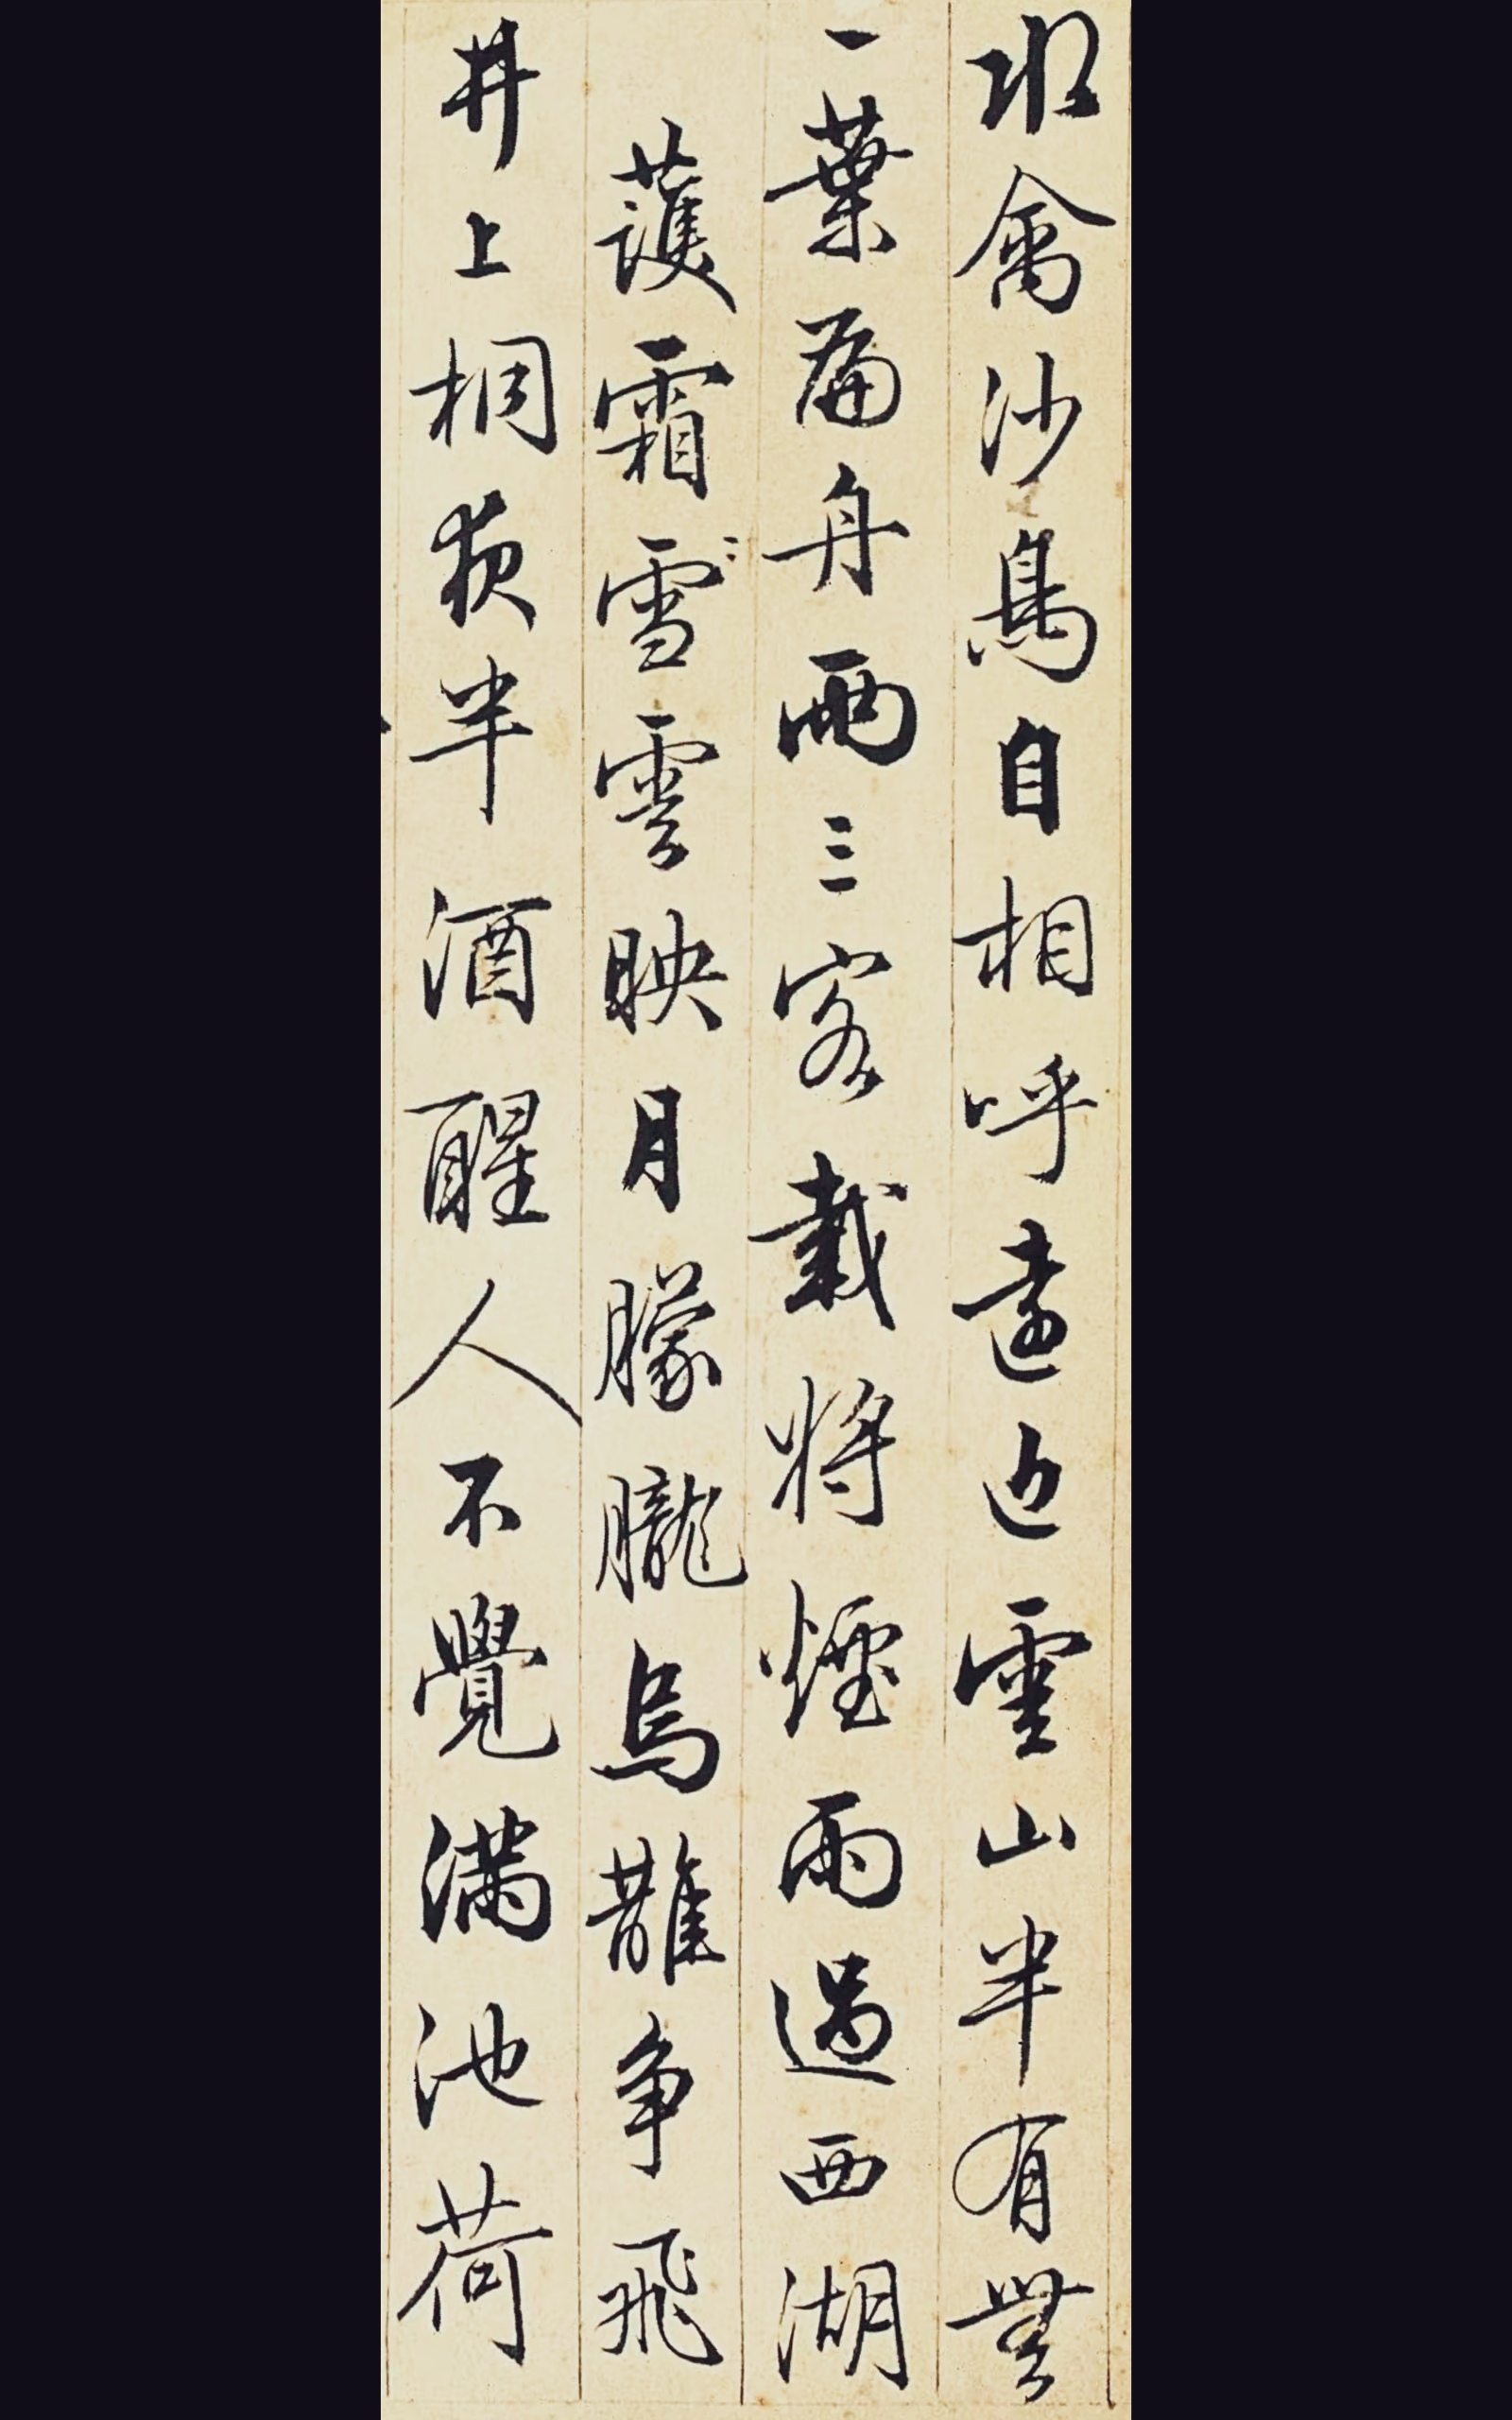 水禽沙鳥自相呼遠近雲山半有無
一葉扁舟兩三客載將煙雨過西湖
護霜雪雲映月朦朧烏鵲爭飛
井上桐夜半酒醒人不覺滿池荷